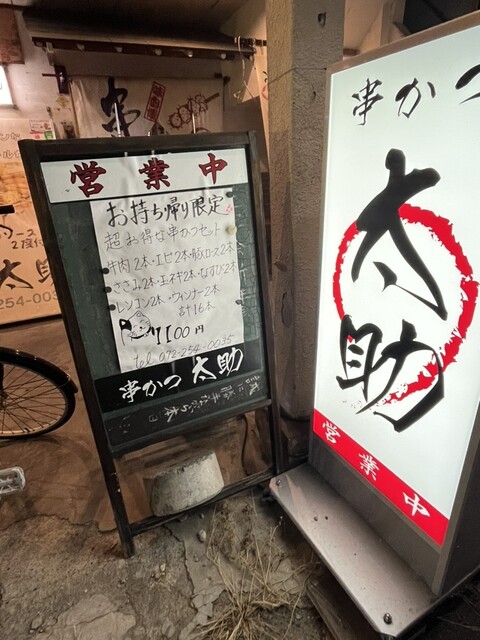 営業中
お持ち帰り限定
超お得な串かつセット
牛肉2本・エビ2本・豚ロース2本
ささみ2本・玉ネギ2本・なすび2本
レンコン2本・ウィンナー2本
計16本
1100円
tel 072-254-0035
串かつ 太助
串かつ
太助
営業中
串
ソース
2度付
太助
254-003